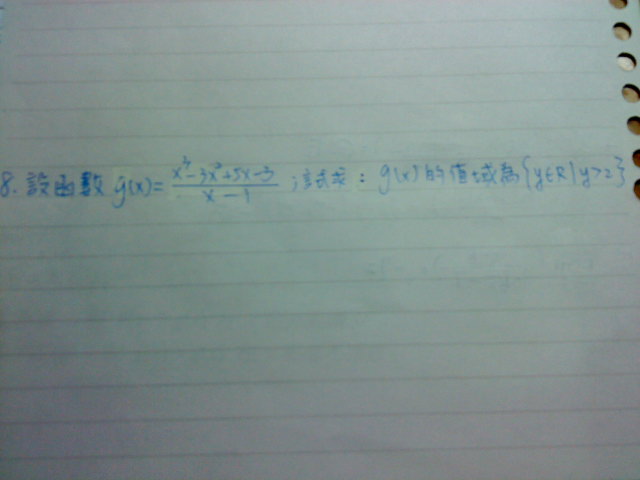 8. 設函數 g(x)= x³-3x²+5x-3 / x-1 ; 試求 : g(x)的值域為{y∈R|y>2}